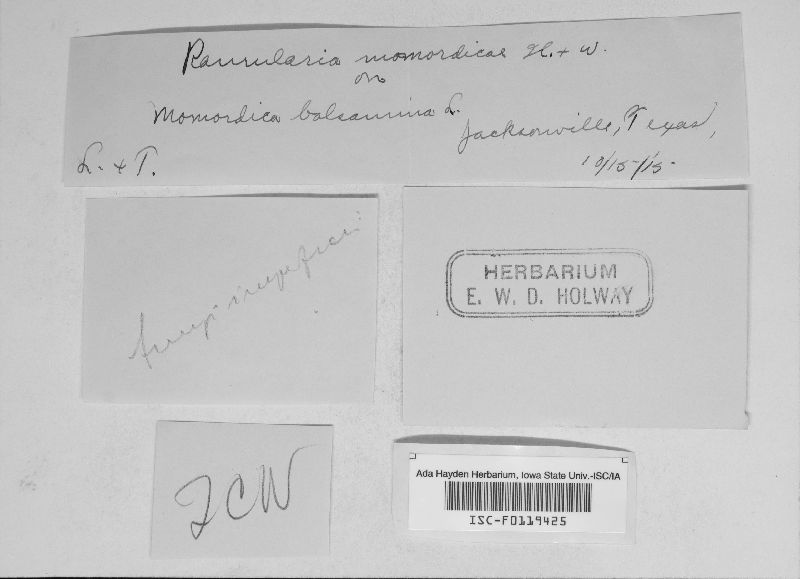 Ramularia momordicae H. + W.
on
Momordica balsamina L.
Jacksonville, Texas,
L. + T.
10/15/15
fungi imperfecti
HERBARIUM
E. W. D. HOLWAY
ICW
Ada Hayden Herbarium, Iowa State Univ.-ISC/IA
ISC-F0119425